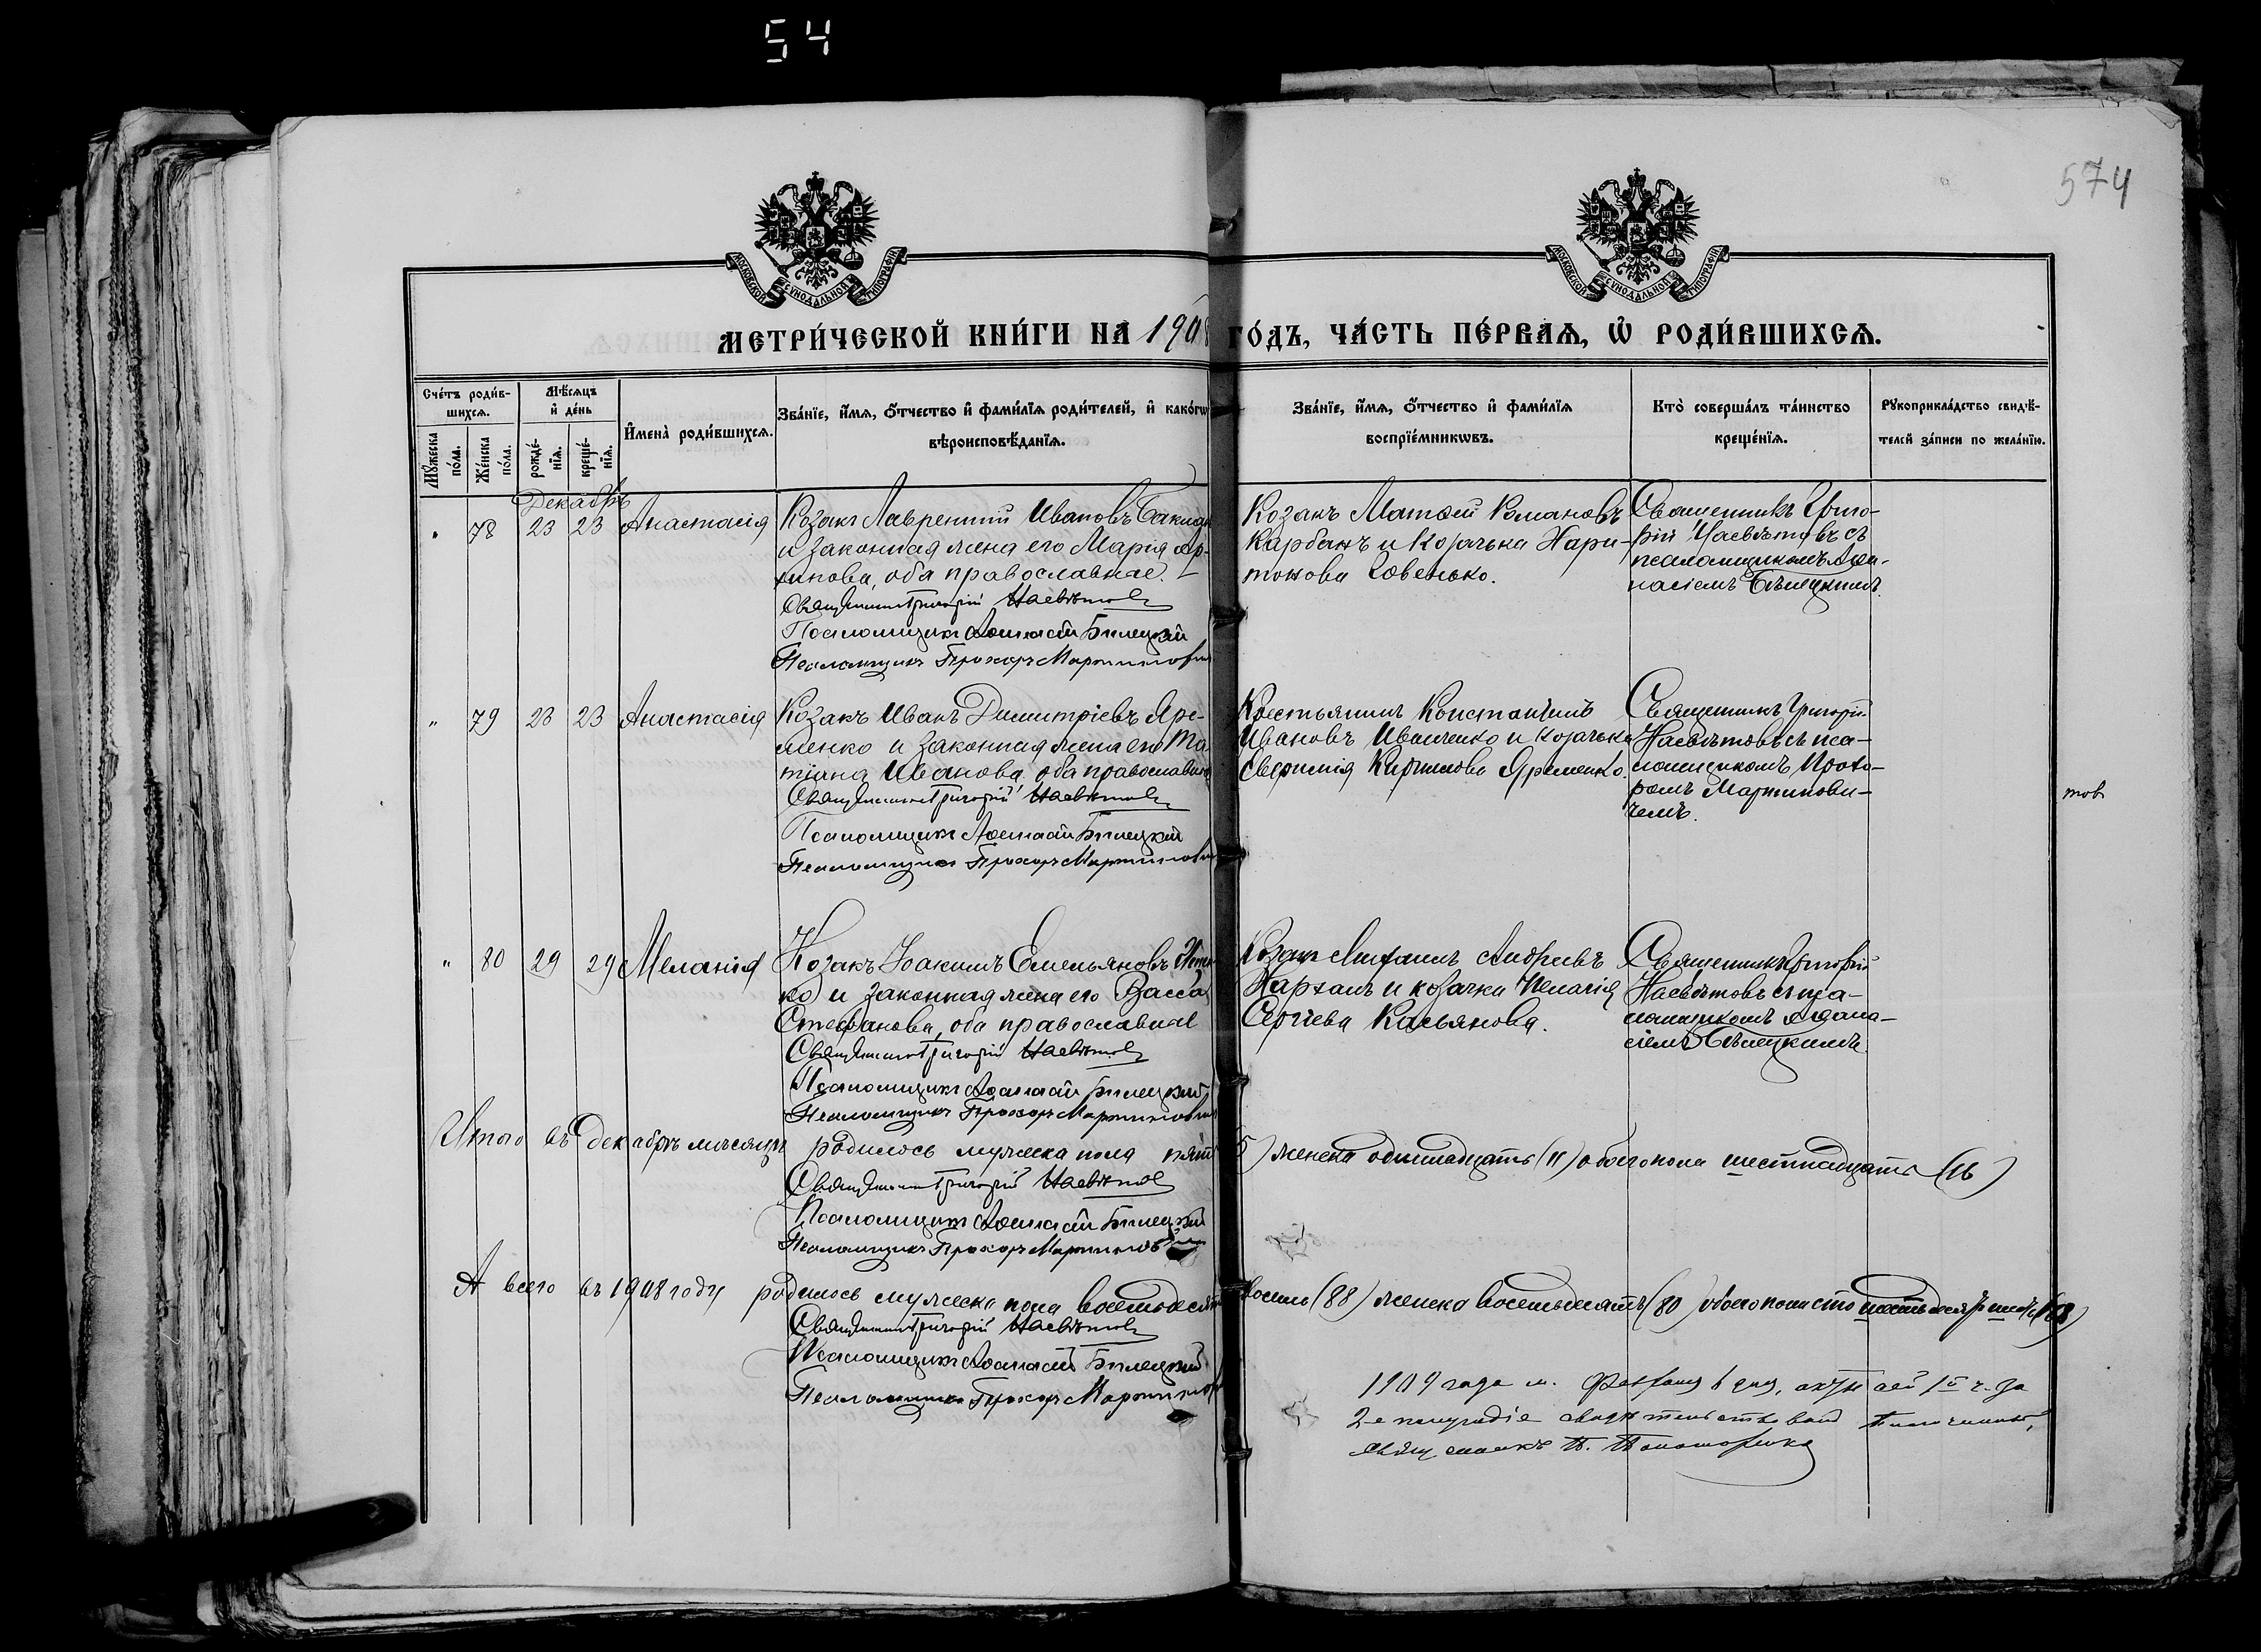 54
574
МОСКОВСКОЙ СУНОДАЛЬНОЙ ТИПОГРАФІИ
МОСКОВСКОЙ СУНОДАЛЬНОЙ ТИПОГРАФІИ
МЕТРИ́ЧЕСКОЙ КНИ́ГИ НА 1908 ГО́ДЪ, ЧА́СТЬ ПЕ́РВАѦ, Ѽ РОДИ́ВШИХСѦ.
Сче́тъ роди́в-
шихсѧ.
Мꙋ́жеска
по́ла.
Же́нска
по́ла.
Мѣ́сѧцъ
и҆ де́нь
рожде́-
нїѧ.
креще́-
нїѧ.
И҆мена̀ роди́вшихсѧ.
Зва́нїе, и҆́мѧ, ѻ҆́тчество и҆ фами́лїѧ роди́телей, и҆ како́гѡ
вѣроисповѣ́данїѧ.
Зва́нїе, и҆́мѧ, ѻ҆́тчество и҆ фами́лїѧ
воспрїе́мникѡвъ.
Кто̀ соверша́лъ та́инство
креще́нїѧ.
Рꙋкоприкла́дство свидѣ́-
телей за́писи по жела́нїю.
Декабрь
" 78 23 23 Анастасія
Козакъ Лаврентій Ивановъ
и законная жена его Марія Ар-
хипова, оба православные.
Священникъ Григорій Насвѣтовъ
Псаломщикъ Аѳанасій Билецкій
Псаломщикъ Прохоръ Мартиновичъ
Козакъ Матѳей Романовъ
Карбанъ и козачька Хари-
тонова Совенько.
Священникъ Григо-
рій Насвѣтовъ съ
псаломщикомъ Аѳа-
насіемъ Бѣлецкимъ.
" 79 23 23 Анастасія
Козакъ Иванъ Димитріевъ Яре-
менко и законная жена его Та-
тіана Иванова оба православные
Священникъ Григорій Насвѣтовъ
Псаломщикъ Аѳанасій Билецкій
Псаломщикъ Прохоръ Мартиновичъ
Крестьянинъ Константинъ
Ивановъ Иванченко и козачька
Евфимія Кириллова Яременко.
Священникъ Григорій
Насвѣтовъ съ пса-
ломщикомъ Прохо-
ромъ Мартинови-
чемъ.
тов
" 80 29 29 Меланія
Козакъ Іоакимъ Емельяновъ
ко и законная жена его Васса
Стефанова, оба православные
Священникъ Григорій Насвѣтовъ
Псаломщикъ Аѳанасій Билецкій
Псаломщикъ Прохоръ Мартиновичъ
Козакъ Михаилъ Андреевъ
Пархомъ и козачка Пелагія
Сергіева Касьянова.
Священникъ Григорій
Насвѣтовъ съ пса-
ломщикомъ Аѳана-
сіемъ Бѣлецкимъ.
Итого въ декабрѣ мѣсяцѣ родилось мужеска пола пять (5) женска одиннадцать (11) обоего пола шестнадцать (16)
Священникъ Григорій Насвѣтовъ
Псаломщикъ Аѳанасій Билецкій
Псаломщикъ Прохоръ Мартиновичъ
А всего въ 1908 году родилось мужеска пола восемьдесятъ восемь (88) женска восемьдесятъ (80) обоего пола сто шестьдесятъ (168)
Священникъ Григорій Насвѣтовъ
Псаломщикъ Аѳанасій Билецкій
Псаломщикъ Прохоръ Мартиновичъ
1909 года м. Февраля 6 дня, 1й ч. за
2-е полугодіе свидѣтельствовалъ Благочинный,
священникъ П. Пономаренко